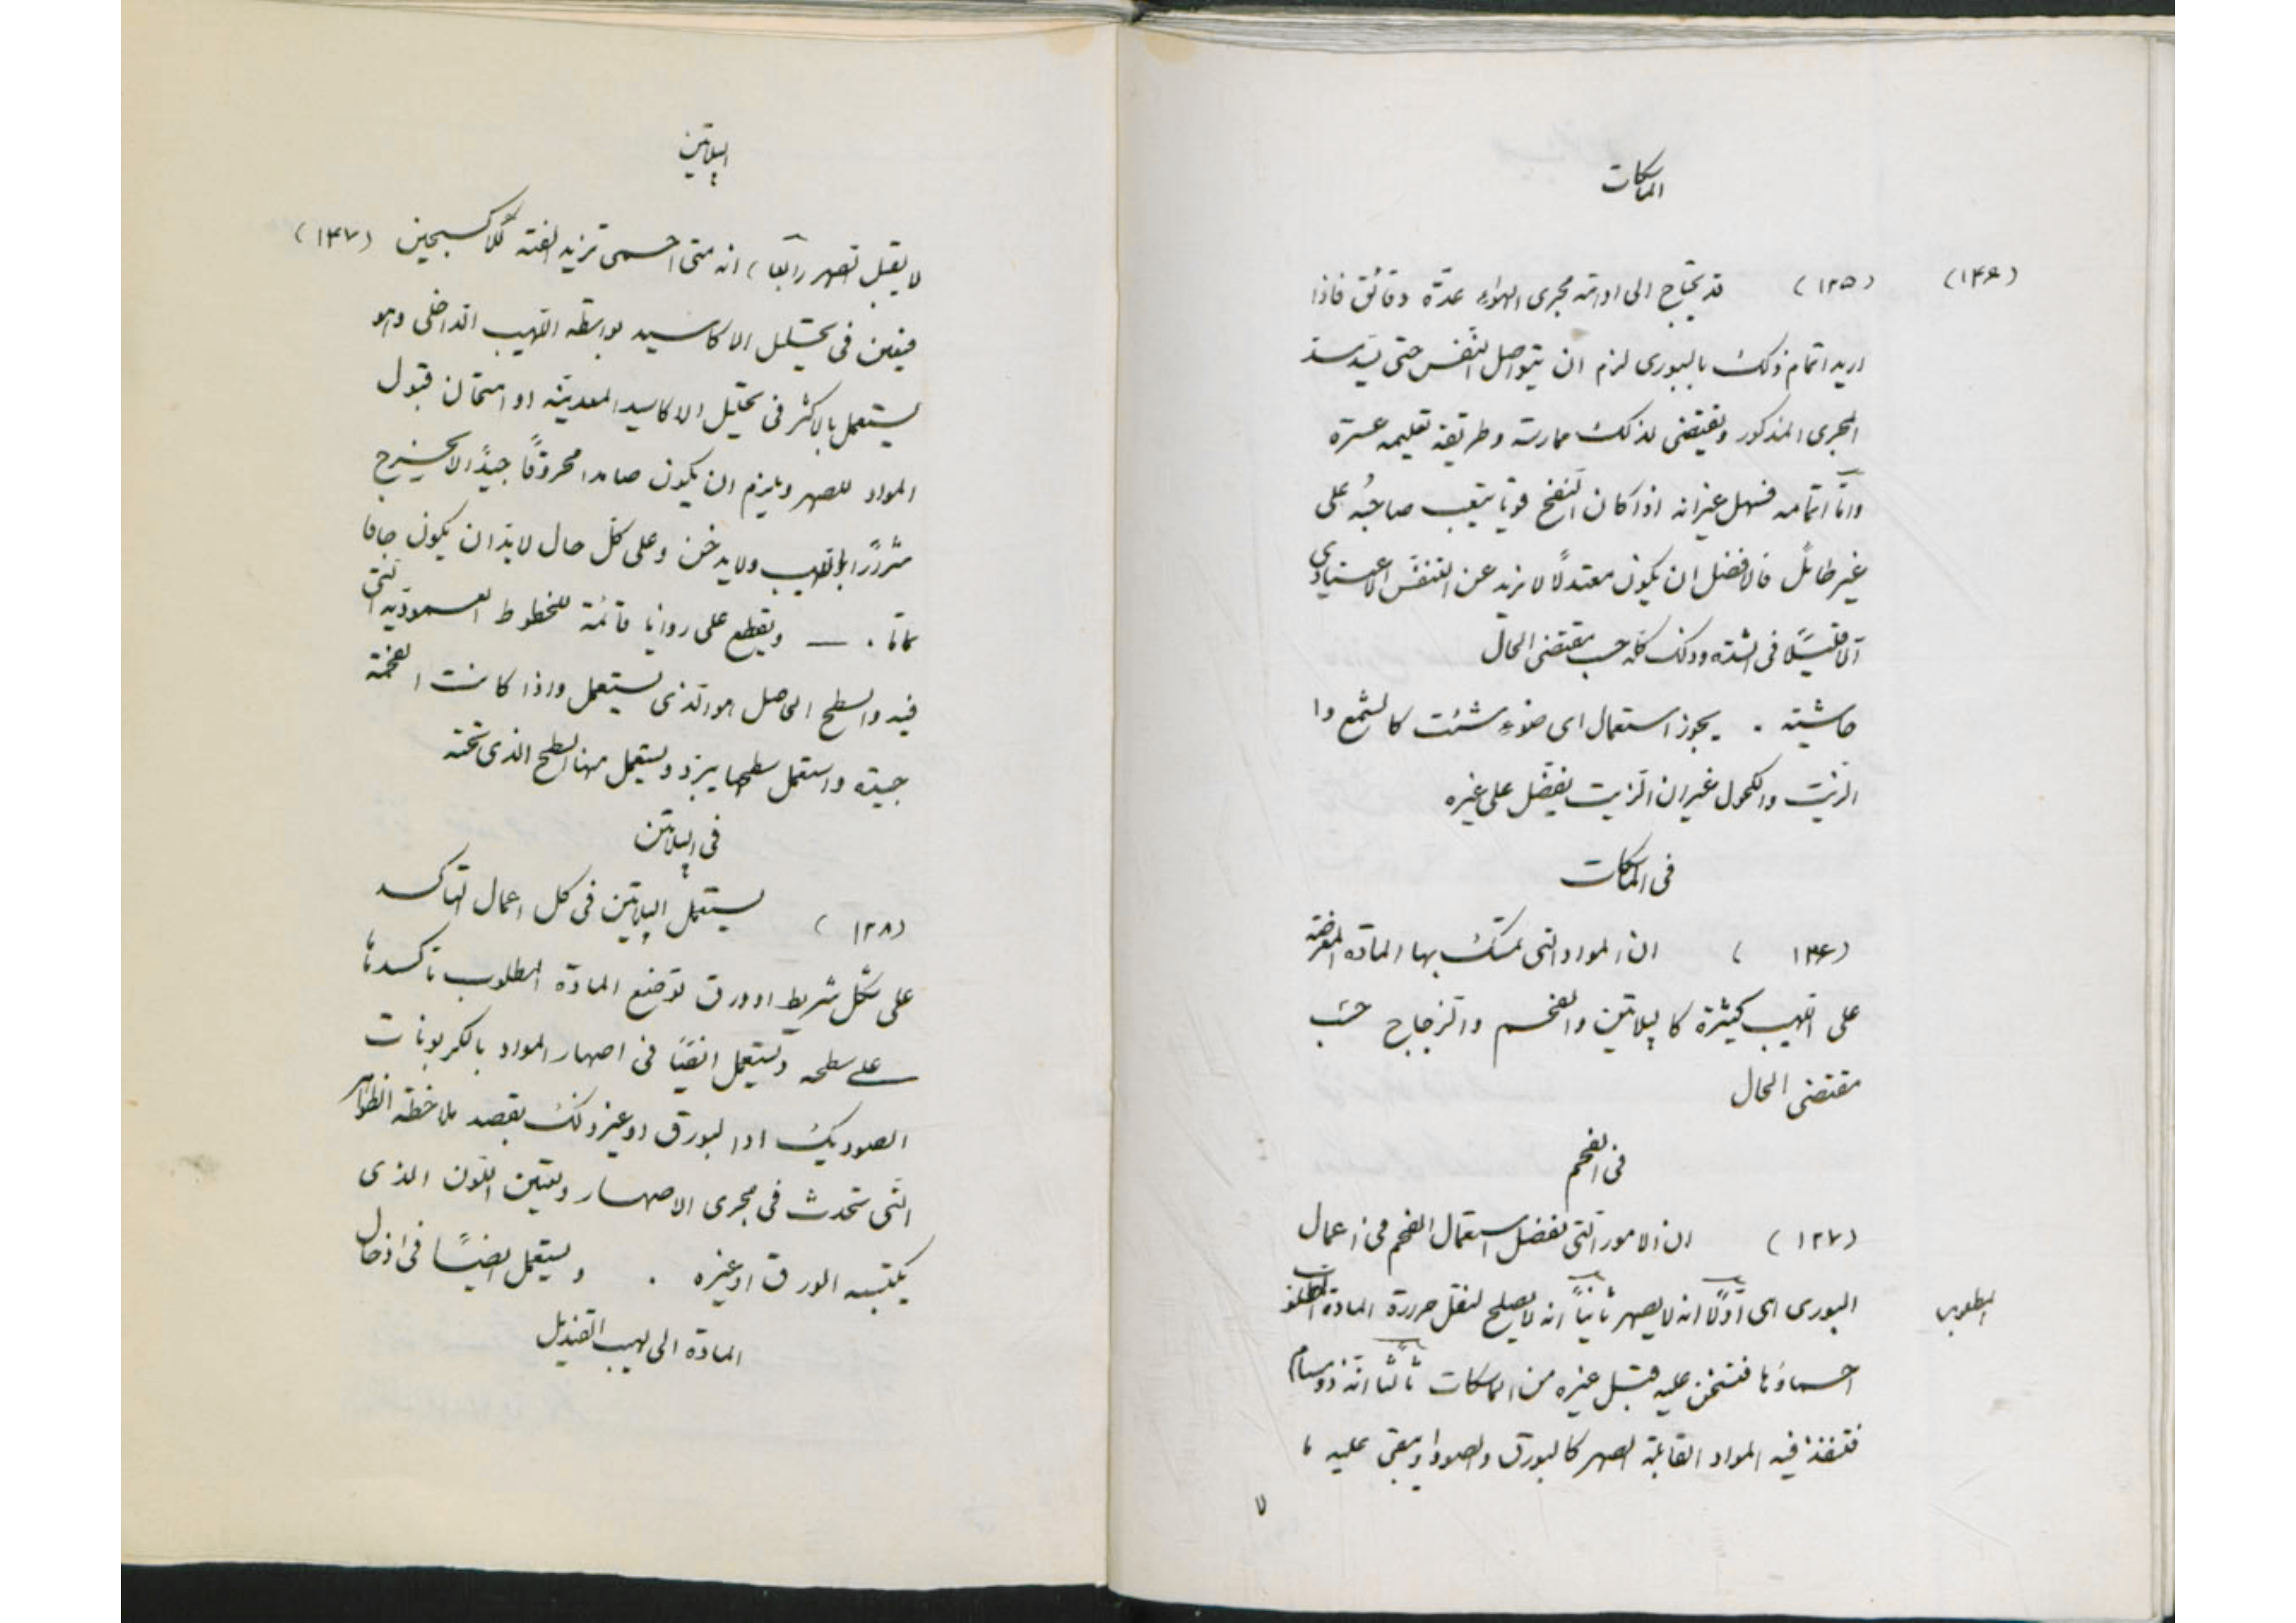 الماسكات
(١٤٦)
(١٢٥) قد يحتاج الى ادامة مجرى الهواء عدة دقائق فاذا
اريد اتمام ذلك بالبورى لزم ان يتواصل النفس حتى
المجرى المذكور ويقتضى لذلك ممارسة وطريقة تعليمه عسرة
وامّا اتمامه فسهل غير انه اذا كان النفخ قويا يتعب صاحبُه على
غير طائل فالافضل ان يكون معتدلًا لا يزيد عن التنفس الاعتيادى
الّا قليلًا فى الشدة وذلك كله حسب مقتضى الحال
حاشيته . يجوز استعمال اى ضوء شئت كالشمع وا
الزيت والكحول غير ان الزيت يفضل على غيره
فى الماسكات
(١٢۶) ان المواد التى تمسك بها المادة المعرضة
على اللهيب كثيرة كالپلاتين والفحم والزجاج حسب
مقتضى الحال
فى الفحم
(١٢٧) ان الامور التى تفضل استعمال الفحم فى اعمال
البورى هى اوّلًا انه لا يصهر ثانياً انه لا يصلح لنقل حررة المادة المطلوب
المطلوب
احماؤها فتسخن عليه قبل غيره من الماسكات ثالثًا انّه ذو مسام
فتنفذ فيه المواد القابلة الصهر كالبورق والصودا ويبقى عليه ما
٧
الپلاتين
لا يقبل تصهر رابعًا) انه متى احمى تزيد الفته للاكسجين (١٤٧)
فيعين فى تحليل الاكاسيد بواسطة اللهيب الداخلى وهو
يستعمل بالاكثر فى تحليل الاكاسيد المعدنية او امتحان قبول
المواد للصهر ويلزم ان يكون صامدا محروقًا جيدًا لا يخرج
شررًا باللهيب ولا يدخن وعلى كل حال لا بد ان يكون جافا
تماما . ـــ ويقطع على زوايا قائمة للخطوط العمودية التى
فيه والسطح الحاصل هو الذى يستعمل واذا كانت الفحمة
جيدة واستعمل سطحها يبرد ويستعمل منها السطح الذى تحته
فى الپلاتين
(١٢٨) يستعمل الپلاتين فى كل اعمال التاكسد
على شكل شريط او ورق توضع المادة المطلوب تاكسدها
على سطحه ويستعمل ايضًا فى اصهار المواد بالكربونات
الصوديك او البورق او غير ذلك بقصد ملاحظة الظواهر
التى تحدث فى مجرى الاصهار وتعيين اللون الذى
يكتسبه الورق او غيره . ويستعمل ايضًا فى ادخال
المادة الى لهيب القنديل